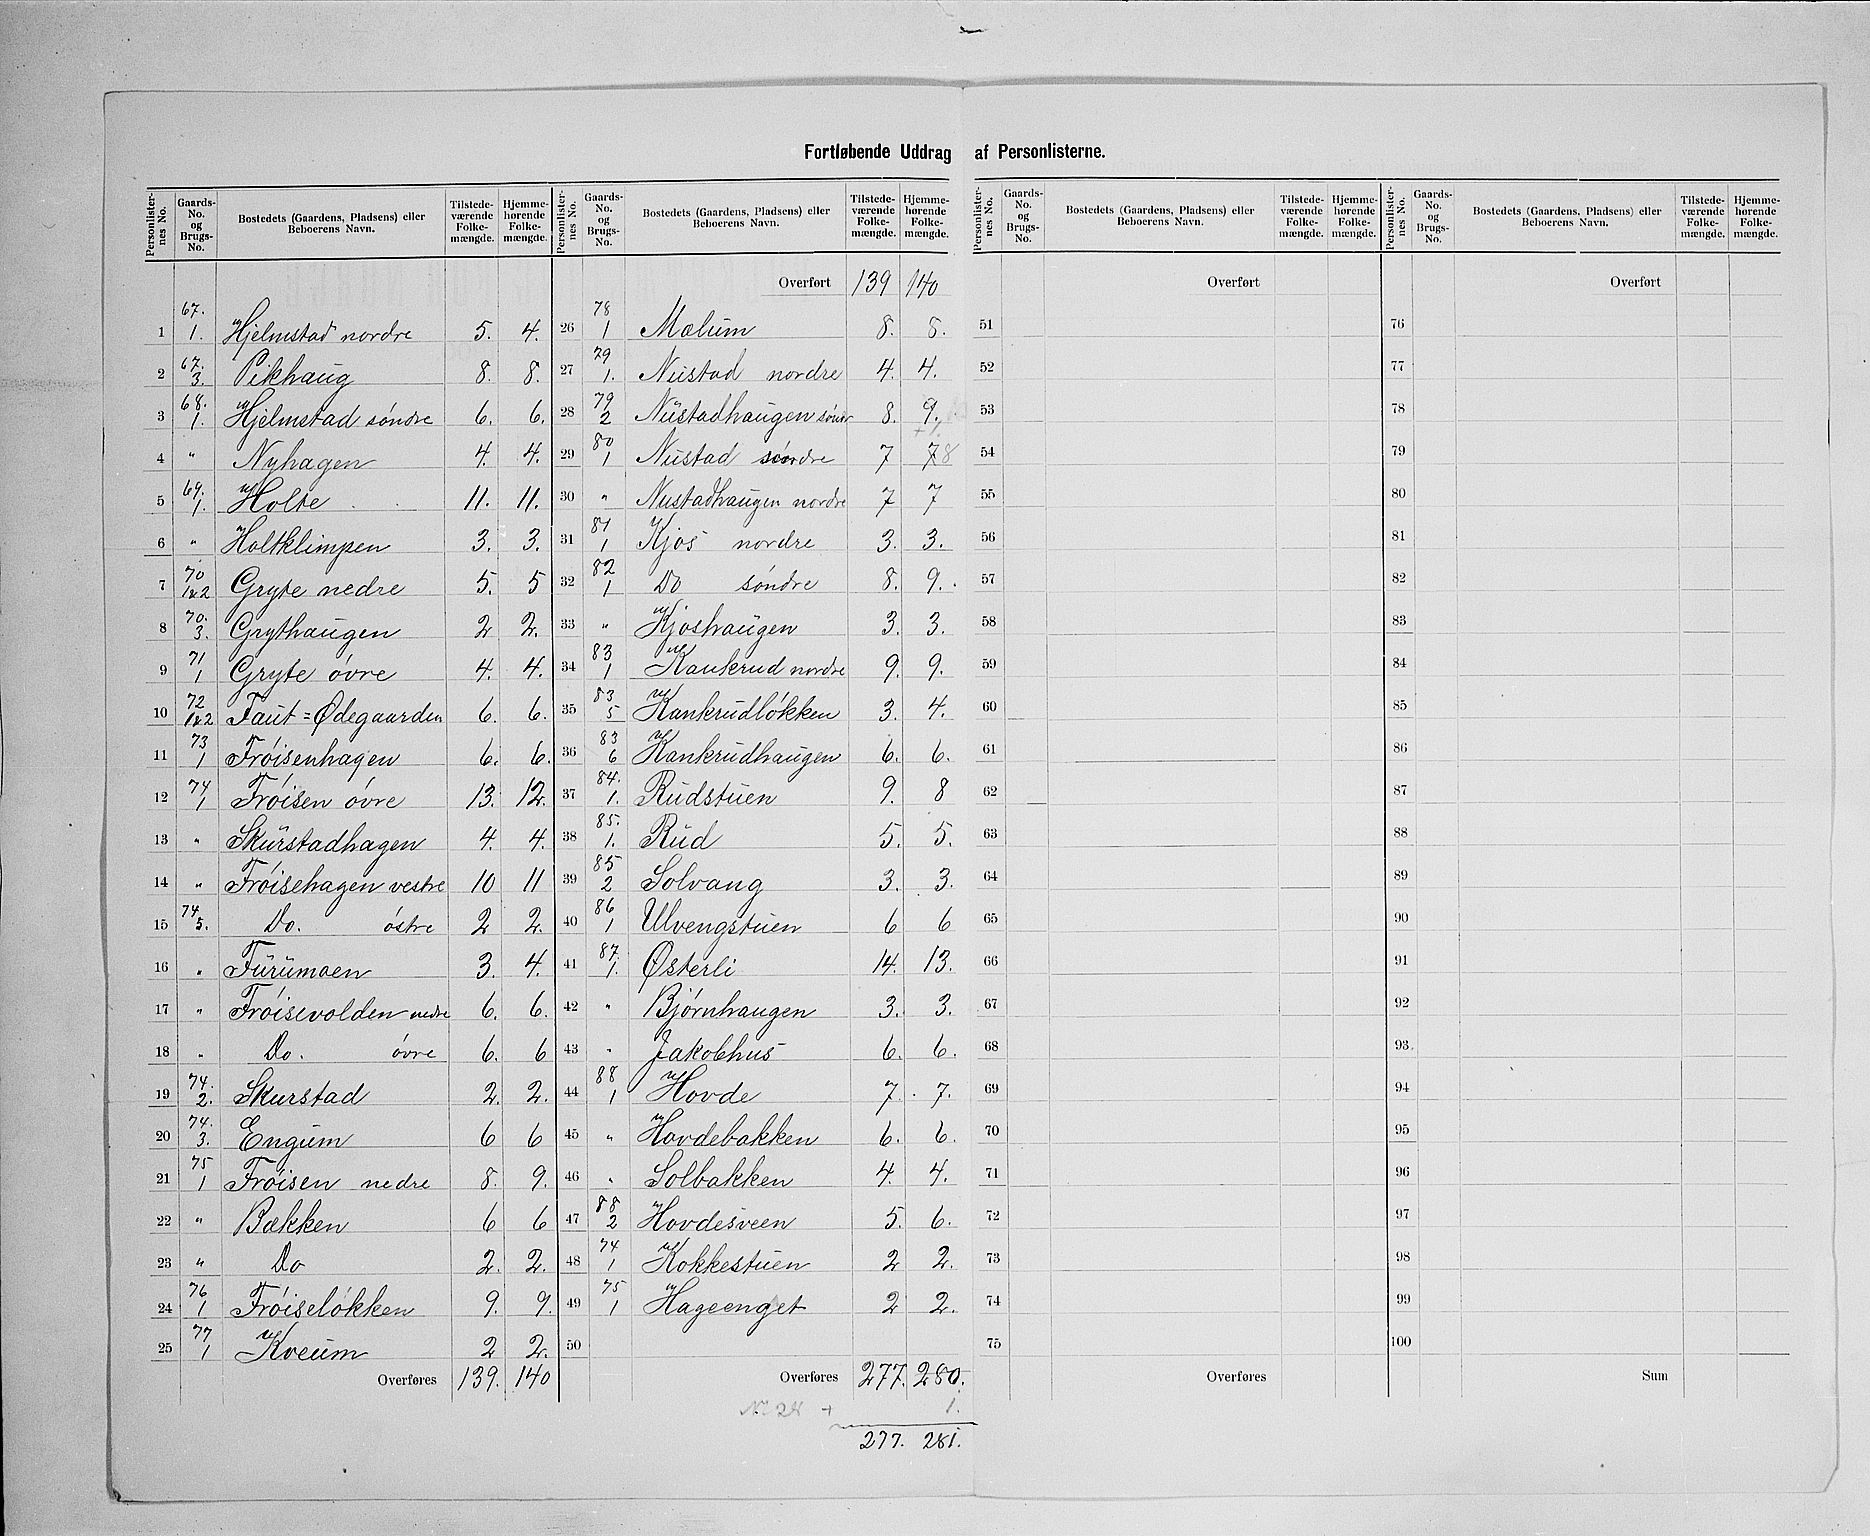 Fortløbende Uddrag af Personlisterne.
Personlister-nes No. | Gaards-No. og Brugs-No. | Bostedets (Gaardens, Pladsens) eller Beboerens Navn. | Tilstede-værende Folke-mængde. | Hjemme-hørende Folke-mængde.
1 | 67. 1. | Hjelmstad nordre | 5. | 4.
2 | 67. 3. | Pikhaug | 8. | 8.
3 | 68. 1. | Hjelmstad søndre | 6. | 6.
4 | " | Nyhagen | 4. | 4.
5 | 69. 1. | Holte | 11. | 11.
6 | " | Holtklimpen | 3. | 3.
7 | 70 1&2 | Gryte nedre | 5. | 5
8 | 70. 3. | Grythaugen | 2 | 2.
9 | 71 1 | Gryte øvre | 4. | 4.
10 | 72 1&2 | Taut=Ødegaarden | 6. | 6.
11 | 73 1 | Frøisenhagen | 6. | 6.
12 | 74 1 | Frøisen øvre | 13. | 12.
13 | " | Skurstadhagen | 4. | 4.
14 | " | Frøisehagen vestre | 10 | 11
15 | 74 5. | Do. østre | 2 | 2.
16 | " | Furumoen | 3. | 4.
17 | " | Frøisevolden nedre | 6. | 6.
18 | " | Do. øvre | 6. | 6
19 | 74. 2. | Skurstad | 2. | 2.
20 | 74. 3. | Engum | 6 | 6
21 | 75 1 | Frøisen nedre | 8. | 9.
22 | " | Bækken | 6 | 6
23 | " | Do | 2. | 2.
24 | 76 1 | Frøiseløkken | 9. | 9.
25 | 77 1 | Kveum | 2 | 2.
Overføres | 139. | 140
Personlister-nes No. | Gaards-No. og Brugs-No. | Bostedets (Gaardens, Pladsens) eller Beboerens Navn. | Tilstede-værende Folke-mængde. | Hjemme-hørende Folke-mængde.
Overført | 139 | 140
26 | 78 1 | Mælum | 8. | 8.
27 | 79 1. | Nustad nordre | 4. | 4.
28 | 79 2 | Nustadhaugen søndr | 8. | 9.
29 | 80 1 | Nustad søndre | 7 | 7 8
30 | " | Nustadhaugen nordre | 7 | 7
31 | 81 1 | Kjos nordre | 3. | 3.
32 | 82 1 | Do søndre | 8. | 9.
33 | " | Kjoshaugen | 3. | 3.
34 | 83 1 | Kankrud nordre | 9. | 9.
35 | 83 5 | Kankrudløkken | 3. | 4.
36 | 83 6 | Kankrudhaugen | 6. | 6.
37 | 84. 1. | Rudstuen | 9. | 8
38 | 85. 1. | Rud | 5. | 5.
39 | 85 2 | Solvang | 3. | 3.
40 | 86 1 | Ulvengstuen | 6 | 6
41 | 87. 1. | Østerli | 14. | 13.
42 | " | Bjørnhaugen | 3. | 3.
43 | " | Jakobhus | 6. | 6.
44 | 88 1 | Hovde | 7. | 7.
45 | " | Hovdebakken | 6. | 6.
46 | " | Solbakken | 4. | 4.
47 | 88 2 | Hovdesveen | 5. | 6.
48 | 74 1 | Kokkestuen | 2 | 2.
49 | 75 1 | Hageenget | 2 | 2.
50
Overføres | 277. | 280.
No 28 + 1.
277. 281.
Personlister-nes No. | Gaards-No. og Brugs-No. | Bostedets (Gaardens, Pladsens) eller Beboerens Navn. | Tilstede-værende Folke-mængde. | Hjemme-hørende Folke-mængde.
Overført
51
52
53
54
55
56
57
58
59
60
61
62
63
64
65
66
67
68
69
70
71
72
73
74
75
Overføres
Personlister-nes No. | Gaards-No. og Brugs-No. | Bostedets (Gaardens, Pladsens) eller Beboerens Navn. | Tilstede-værende Folke-mængde. | Hjemme-hørende Folke-mængde.
Overført
76
77
78
79
80
81
82
83
84
85
86
87
88
89
90
91
92
93
94
95
96
97
98
99
100
Sum